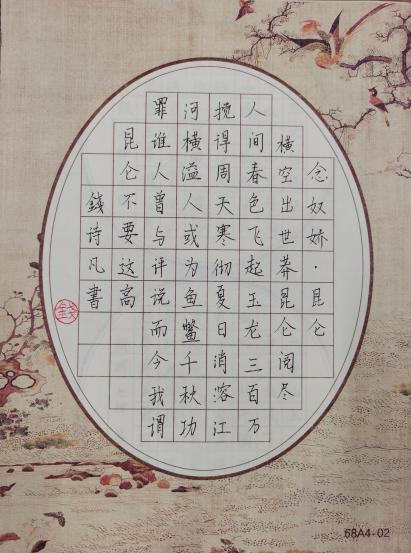 念奴娇·昆仑
横空出世莽昆仑阅尽
人间春色飞起玉龙三百万
搅得周天寒彻夏日消溶江
河横溢人或为鱼鳖千秋功
罪谁人曾与评说而今我谓
昆仑不要这高
錢诗凡書
68A4-02